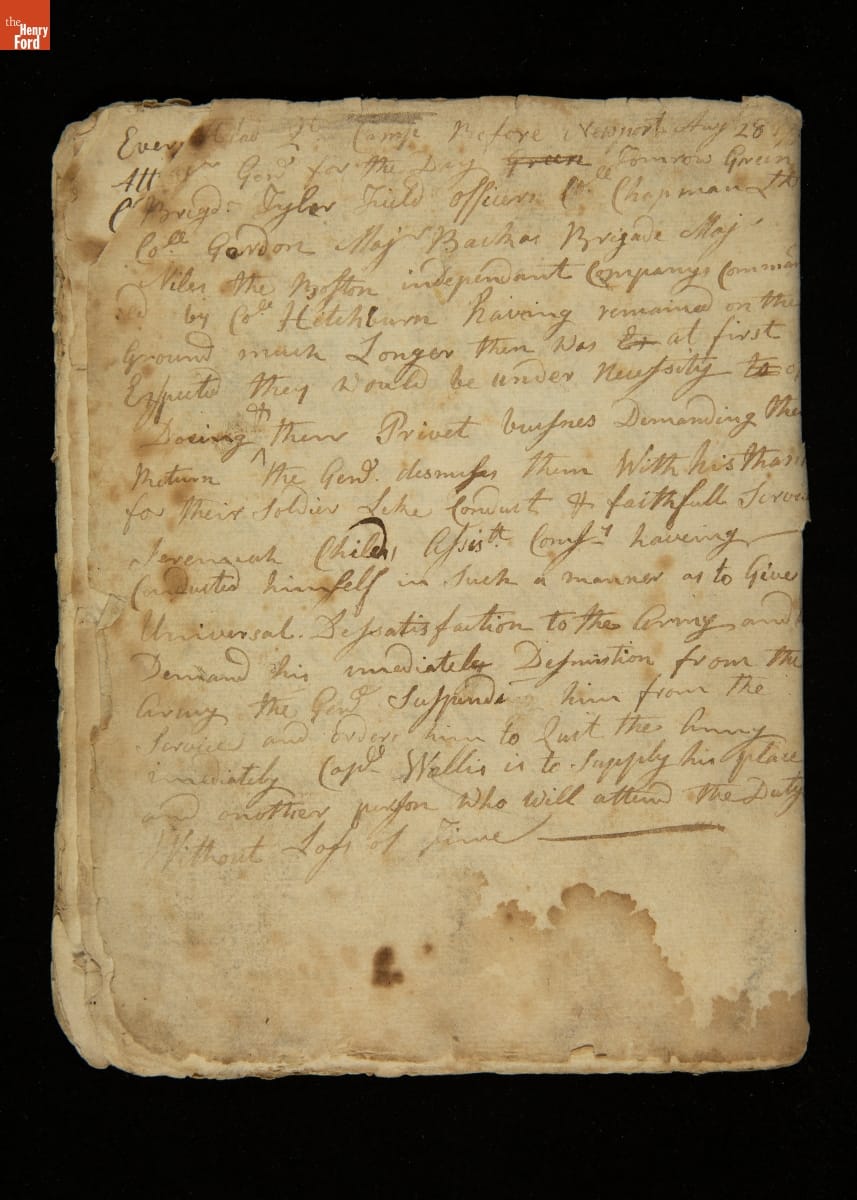 the
Henry
Ford
Every Camp Before Newport Aug 28
Att Genl for the Day Green Tomrow Green
Brigd. Tyler Field Officers Coll Chapman Lt
Coll Gordon Majr Backas Brigade Majr
Niles the Boston independant Companys Comman
by Coll Hitchburn having remained on the
Ground much Longer then was at first
Expected they would be under Necessity
Doeing & there Privet buisnes Demanding the
Return the Genl. desmises them With his than
for their Soldier Like Conduct & faithfull Serv
Jeremiah Childs Assistt Comsy haveing
Conducted himself in Such a manner as to Give
Universal Dessatisfaction to the Army and
Demand his imediately Desmistion from the
Army the Genl Suspends him from the
Service and orders him to Quit the Army
imediately Capt Wallis is to Supply his place
and another person Who will attend the Duty
Without Loss of Time